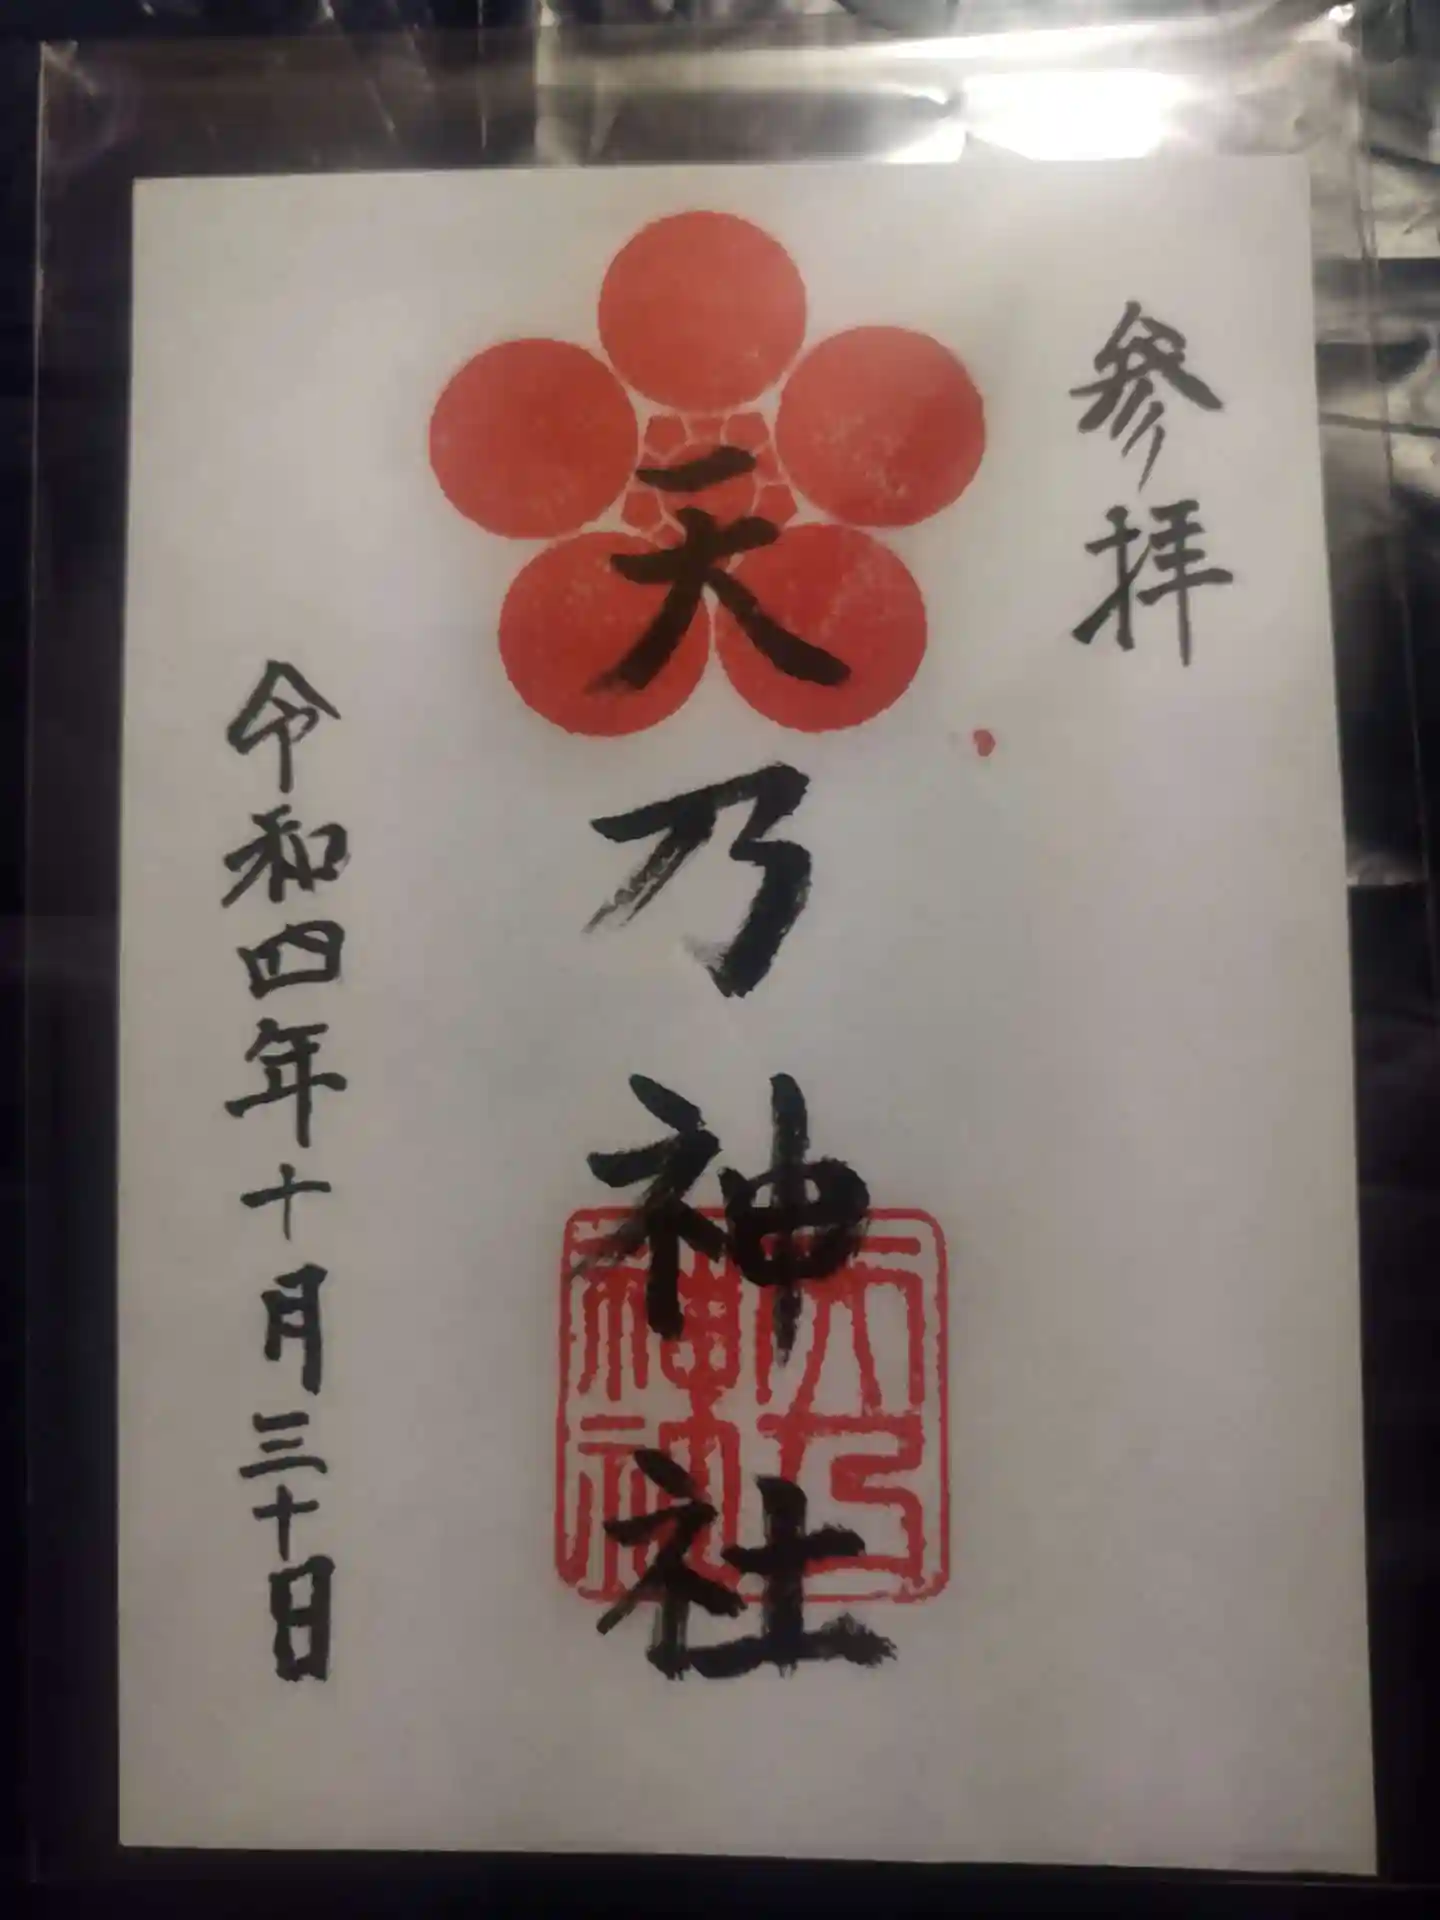 参拝
天乃神社
天乃
神社
令和四年十月三十日